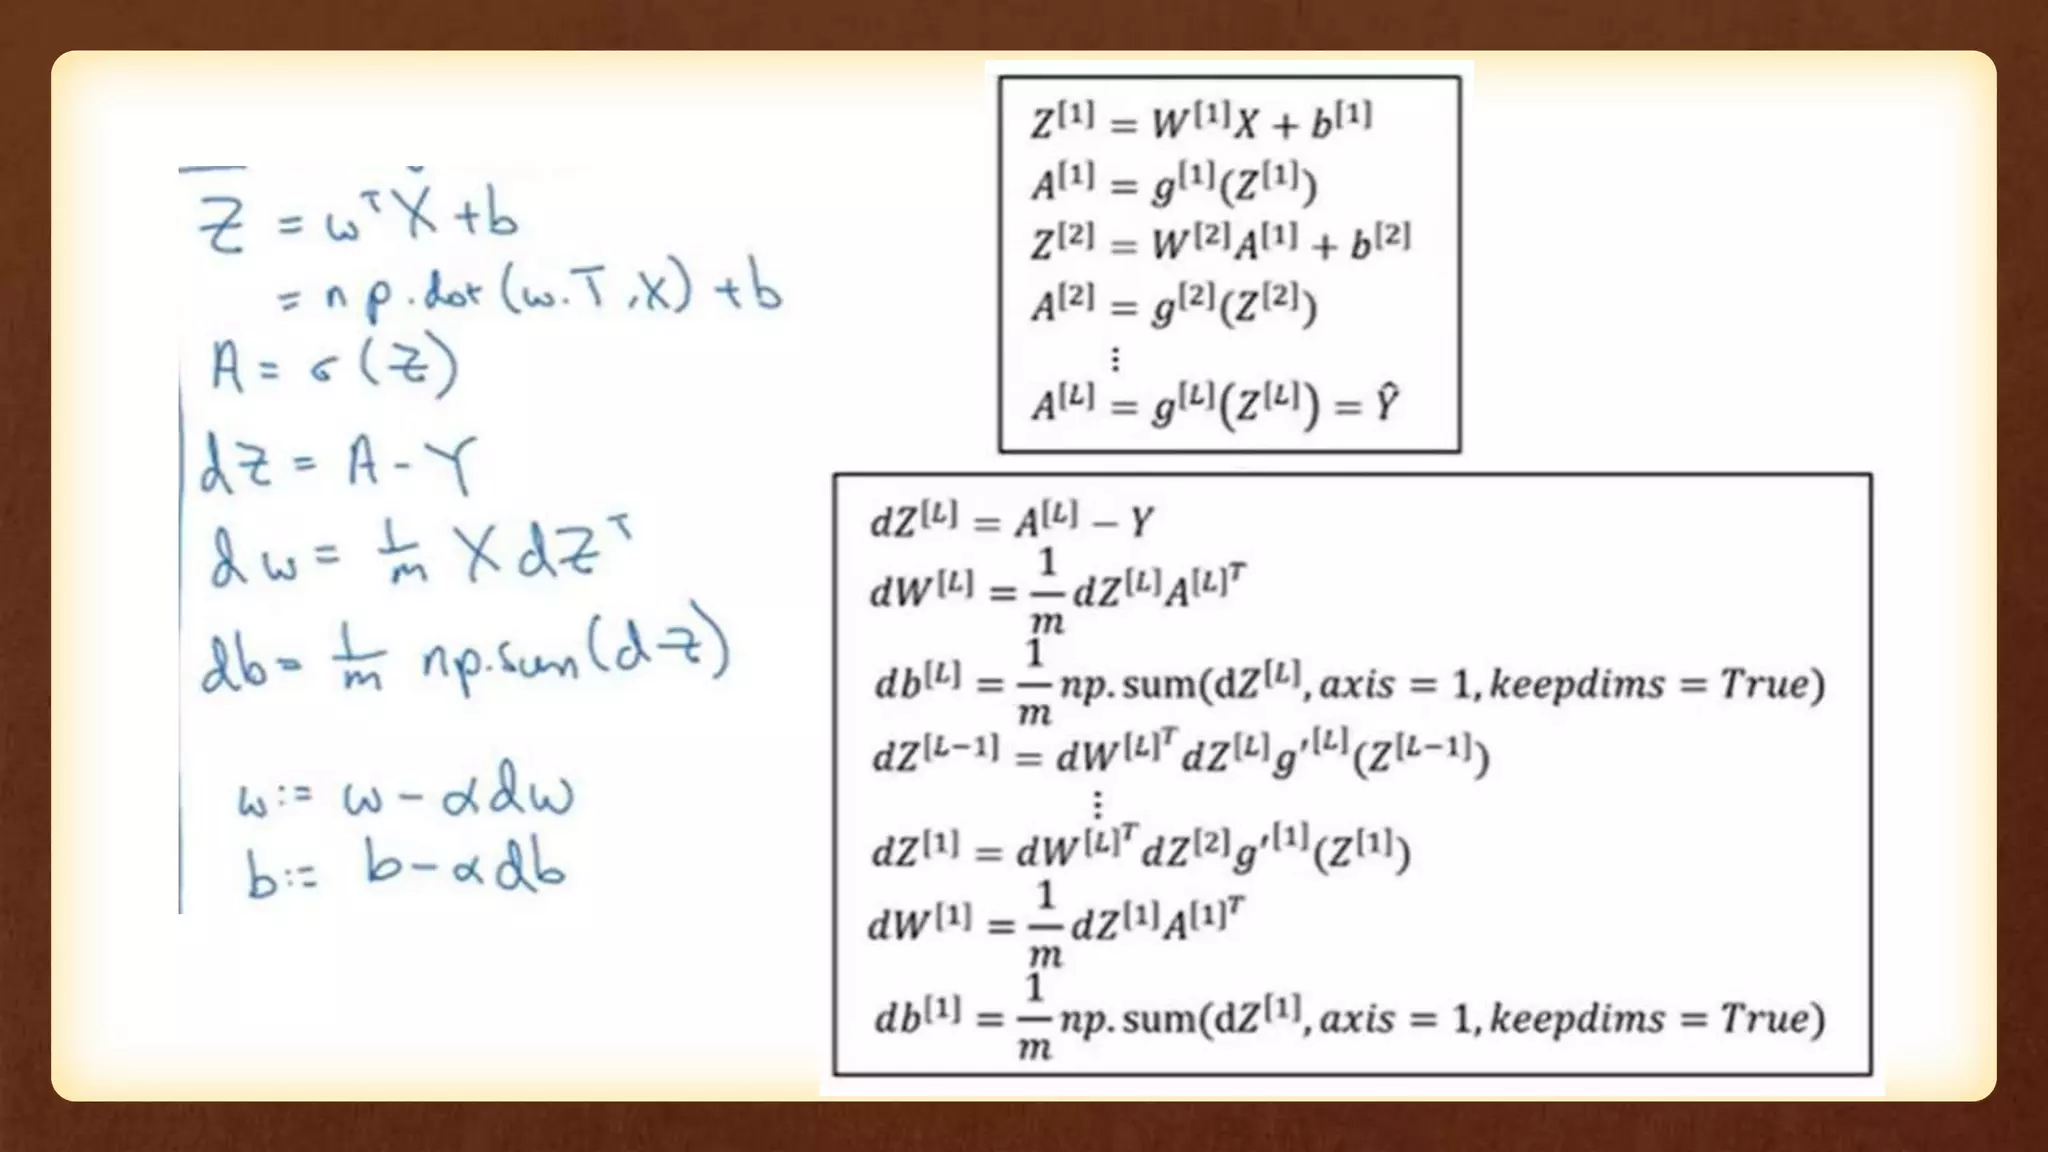 Z = wᵀX + b
= np.dot(w.T, X) + b
A = σ(Z)
dZ = A - Y
dw = 1/m X dZᵀ
db = 1/m np.sum(dZ)
w := w - αdw
b := b - αdb
Z[1] = W[1]X + b[1]
A[1] = g[1](Z[1])
Z[2] = W[2]A[1] + b[2]
A[2] = g[2](Z[2])
⋮
A[L] = g[L](Z[L]) = Ŷ
dZ[L] = A[L] − Y
dW[L] = 1/m dZ[L]A[L]ᵀ
db[L] = 1/m np.sum(dZ[L], axis = 1, keepdims = True)
dZ[L−1] = dW[L]ᵀdZ[L]g′[L](Z[L−1])
⋮
dZ[1] = dW[L]ᵀdZ[2]g′[1](Z[1])
dW[1] = 1/m dZ[1]A[1]ᵀ
db[1] = 1/m np.sum(dZ[1], axis = 1, keepdims = True)